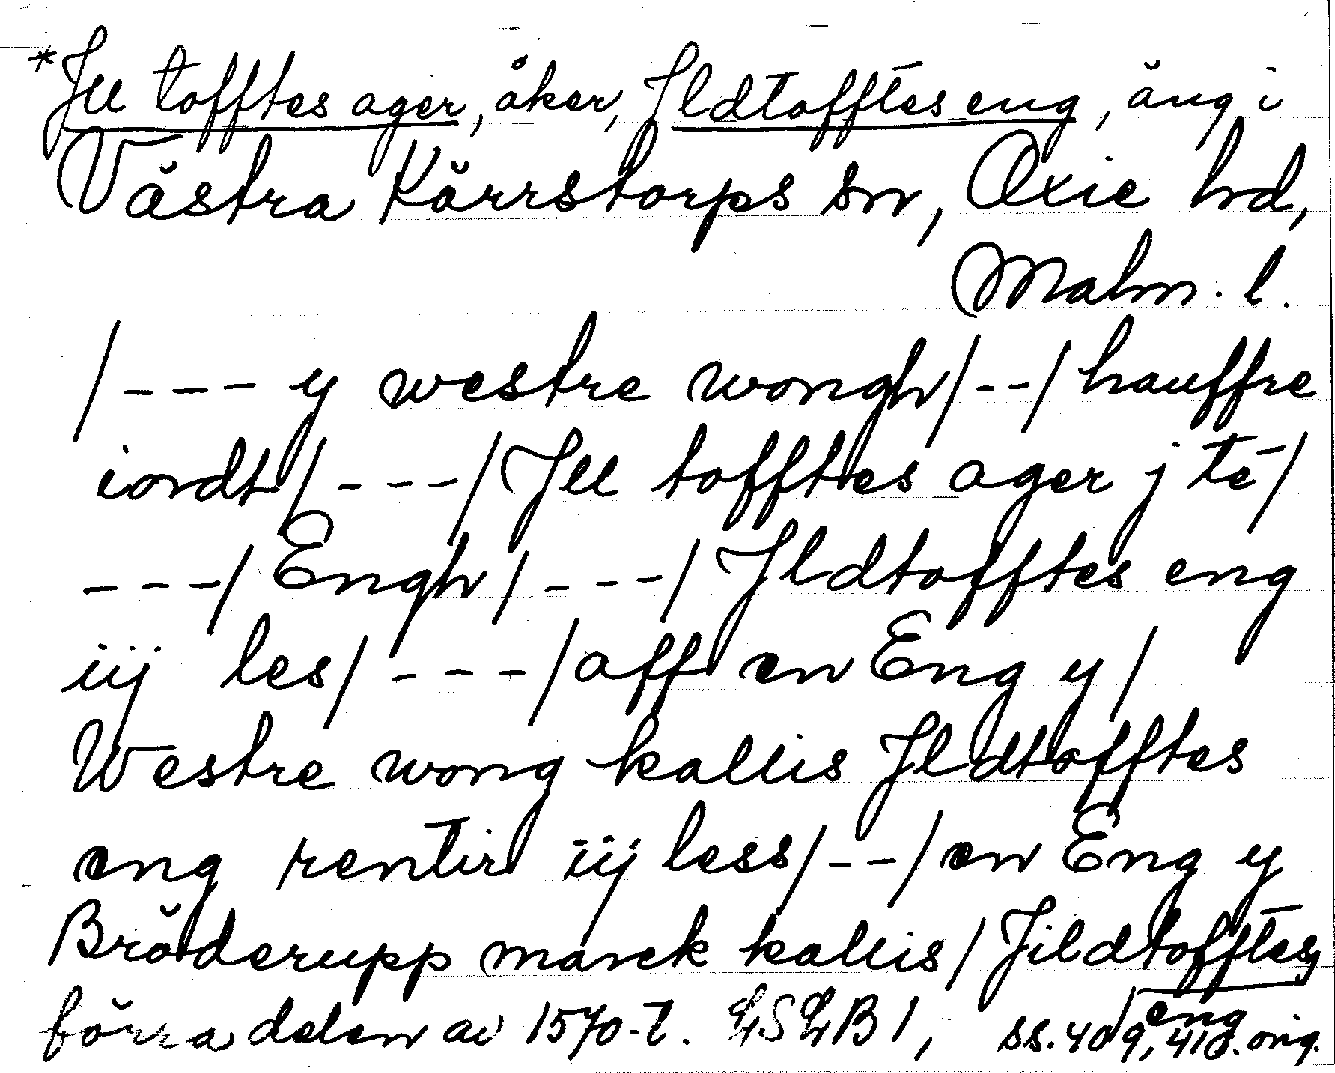 *Jll tofftes ager, åker, Jldtofftes eng, äng i
Västra Kärrstorps sn, Oxie hd,
Malm. l.
/--- y westre wongh/--/hauffre
iordt/---/Jll tofftes ager j te/
---/Engh/---/Jldtofftes eng
iij les/---/aff en Eng y/
Westre wong kallis Jldtofftes
eng rentir iij less/--/en Eng y
Bröderupp marck kallis/Jildtofftes
eng
förra delen av 1570-t. LSLB 1, ss. 409, 418. orig.